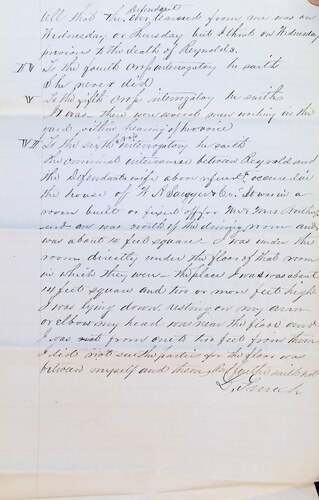 Defendant
all that the learned from me was on
Wednesday or Thursday but I think on Wednesday
previous to the death of Reynolds.
IV To the fourth Cross interrogatory he saith
She never did
V To the fifth Cross interrogatory he saith
I was there were several men working in the
yard within hearing of
VI To the sixth interrogatory he saith
the criminal intercourse between Reynolds and
the Defendants wife above refered to occured in
the house of Sawyer & Co. It was in a
room built or fixed off for Mr & Mrs
and was north of the dining room and
was about 10 feet square. I was under the
room directly under the floor of that room
in which they were the place I was was about
14 feet square and two or more feet high
I was lying down resting on my arm
or elbow my head was near the floor and
I was not from one to two feet from them
I did not see the parties for the floor was
between myself and them &